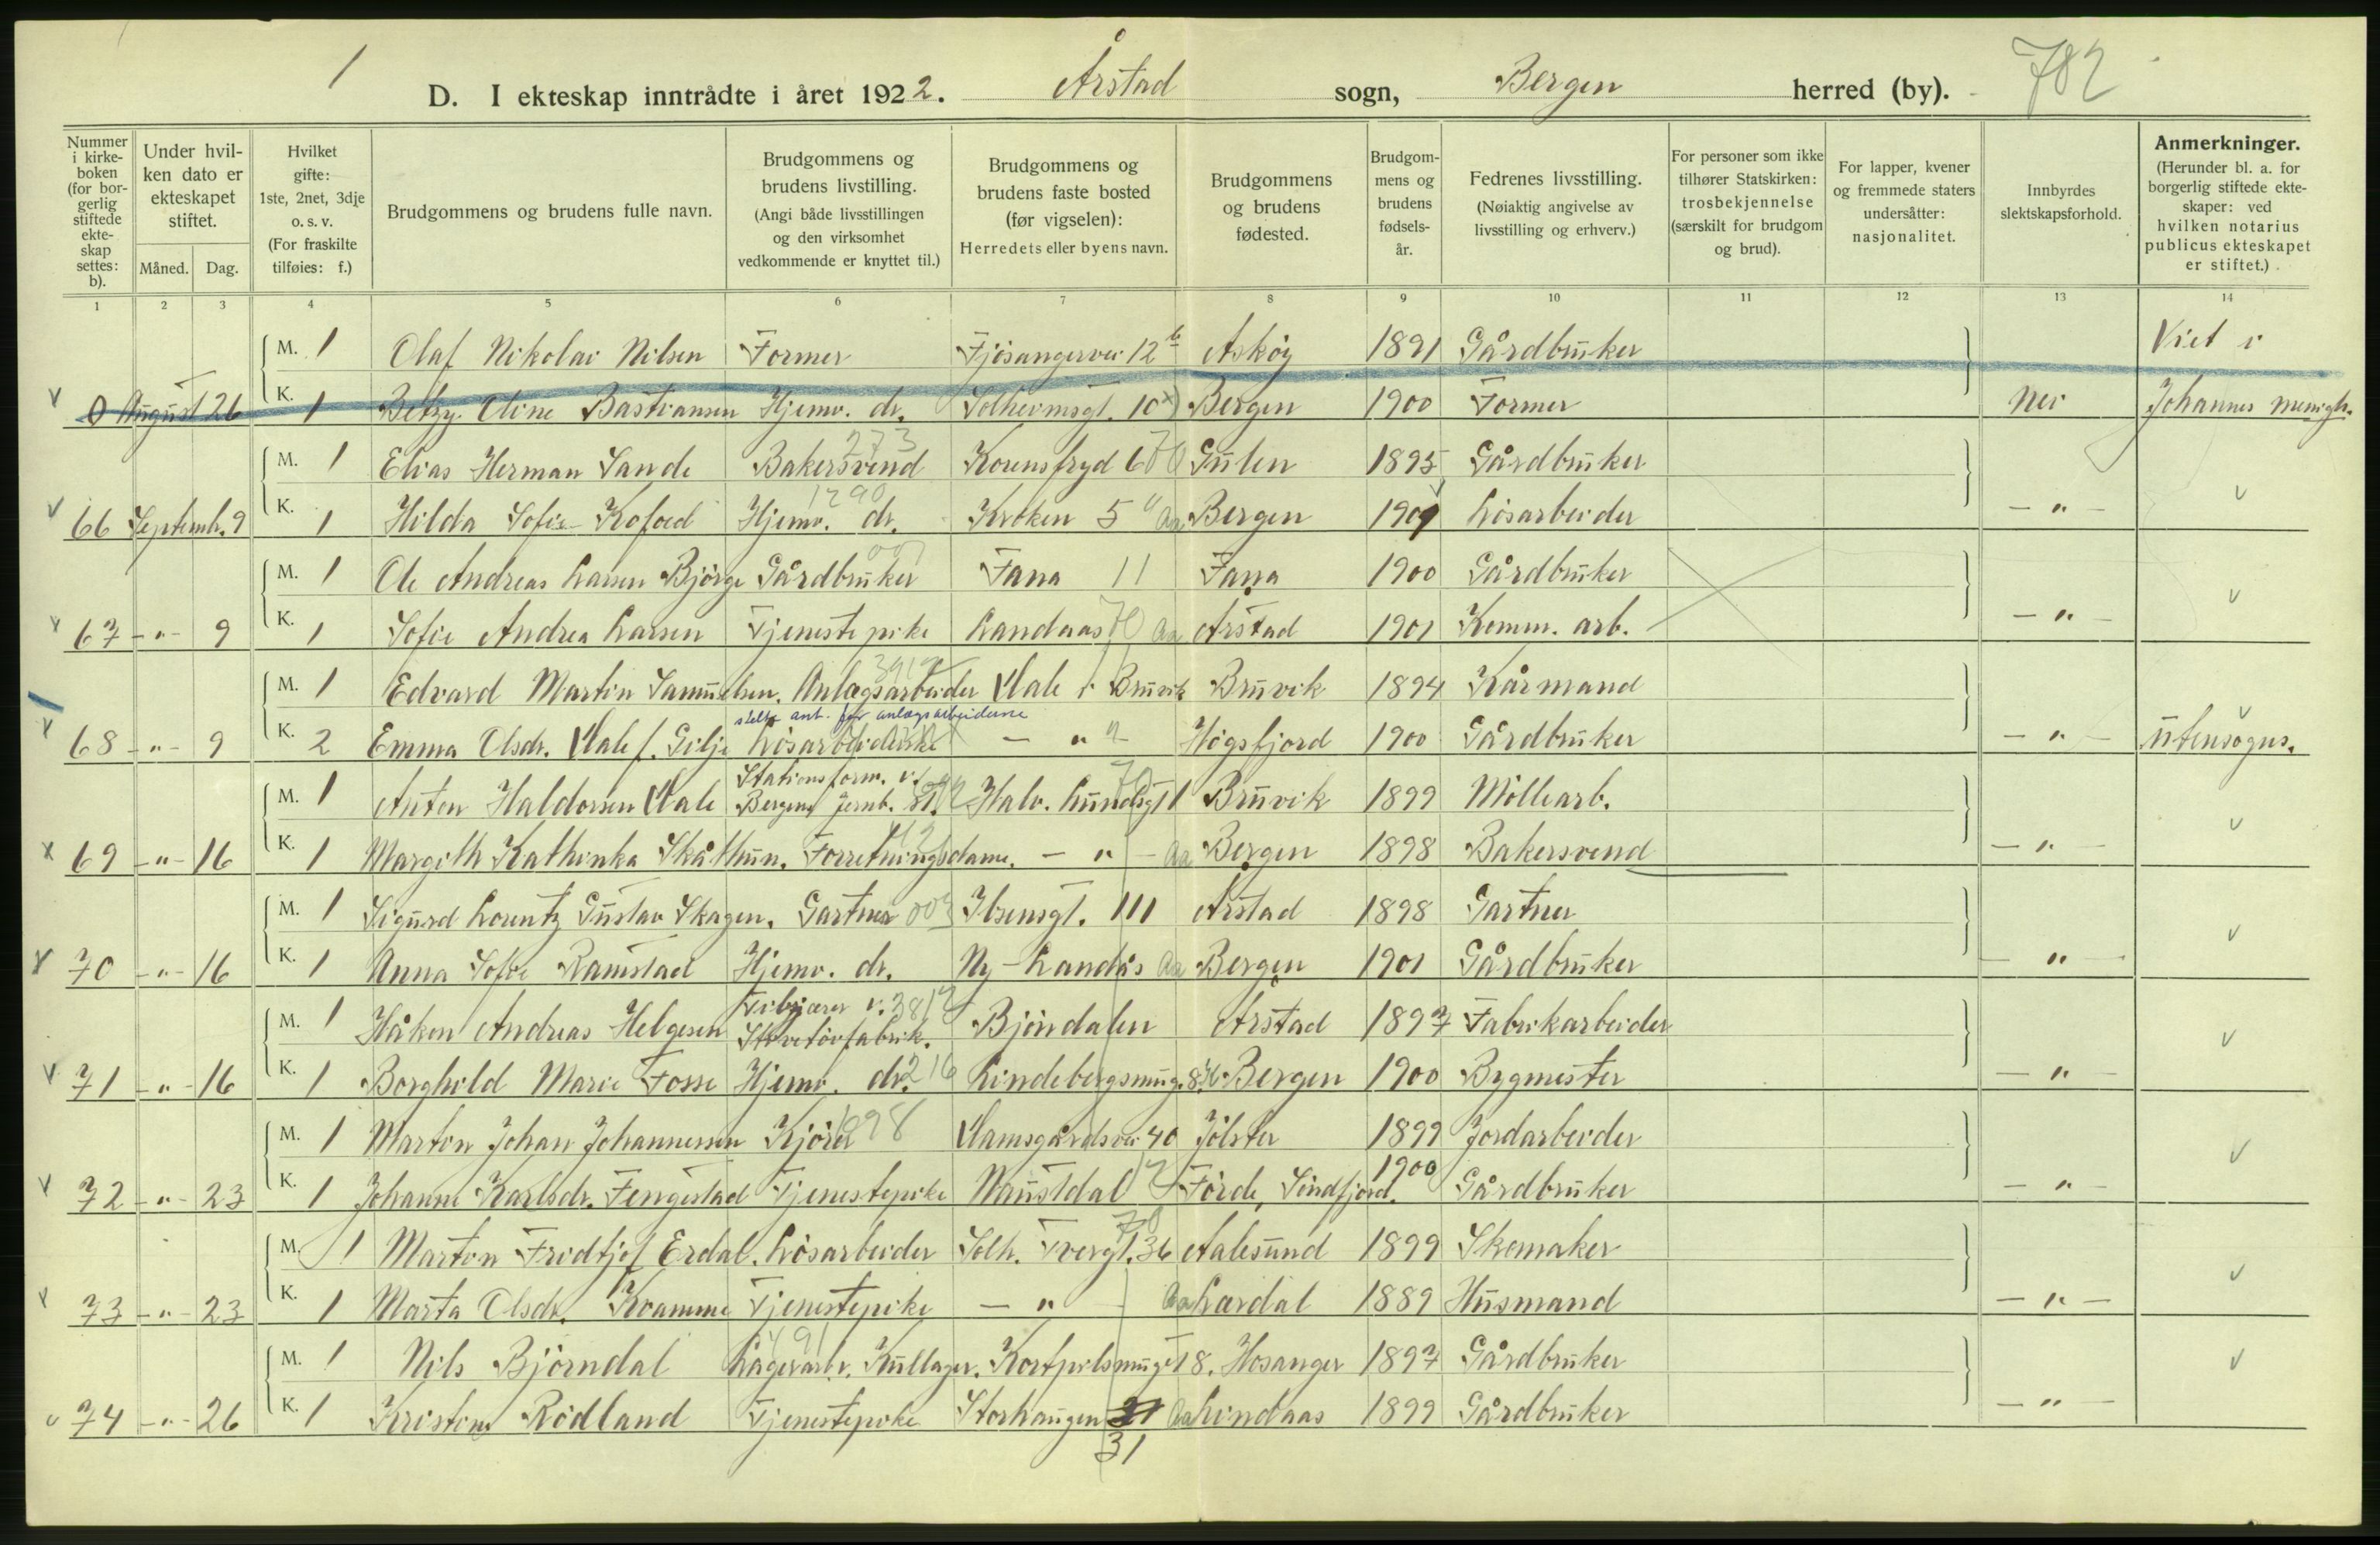 1
D. I ekteskap inntrådte i året 1922. Årstad sogn, Bergen herred (by). 782
Nummer i kirke-boken (for bor-gerlig stiftede ekte-skap settes: b).
Under hvil-ken dato er ekteskapet stiftet.
Måned. Dag.
Hvilket gifte: 1ste, 2net, 3dje o. s. v. (For fraskilte tilføies: f.)
Brudgommens og brudens fulle navn.
Brudgommens og brudens livstilling. (Angi både livsstillingen og den virksomhet vedkommende er knyttet til.)
Brudgommens og brudens faste bosted (før vigselen): Herredets eller byens navn.
Brudgommens og brudens fødested.
Brudgom-mens og brudens fødsels-år.
Fedrenes livsstilling. (Nøiaktig angivelse av livsstilling og erhverv.)
For personer som ikke tilhører Statskirken: trosbekjennelse (særskilt for brudgom og brud).
For lapper, kvener og fremmede staters undersåtter: nasjonalitet.
Innbyrdes slektskapsforhold.
Anmerkninger. (Herunder bl. a. for borgerlig stiftede ekte-skaper: ved hvilken notarius publicus ekteskapet er stiftet.)
1 2 3 4 5 6 7 8 9 10 11 12 13 14
M. 1 Olaf Nikolai Nilsen Former Fjøsangervei 12 b Askøy 1891 Gårdbruker Viet i
0 August 26 K. 1 Betzy Oline Bastiansen Hjemv. dr. Solheimsgt. 10 Bergen 1900 Former Nei Johannes menigh.
M. 1 Elias Herman Sande Bakersvend 273 Korensfryd 6 Gulen 1895 Gårdbruker
66 Septemb. 9 K. 1 Hilda Sofie Kofoed Hjemv. dr. 1290 Kroken 5 Aa Bergen 1901 Løsarbeider - " -
M. 1 Ole Andreas Larsen Bjørge Gårdbruker Fana 11 Fana 1900 Gårdbruker
67 - " - 9 K. 1 Sofie Andrea Larsen Tjenestepike Landaas 70 Aa Årstad 1901 Komm. arb. - " -
M. 1 Edvard Martin Samuelsen. Anlægsarbeider Vale i Bruvik Bruvik 1894 Kårmand
68 - " - 9 K. 2 Emma Olsdr. Vale f. Gilje Løsarbeiderske stelte ant. for anlægsarbeiderne - " - Høgsfjord 1900 Gårdbruker - " - Utensogns.
M. 1 Anton Haldorsen Vale Stationsform. v. Bergens Jernb. st. Halv. Lundsgt 1 Bruvik 1899 Møllearb.
69 - " - 16 K. 1 Margith Kathinka Skålthun. Forretningsdame. - " - Aa Bergen 1898 Bakersvend - " -
M. 1 Sigurd Lorentz Gustav Skagen. Gartner 003 Ibsensgt. 111 Årstad 1898 Gartner
70 - " - 16 K. 1 Anna Sofie Ramstad Hjemv. dr. Ny-Landås Aa Bergen 1901 Gårdbruker - " -
M. 1 Håkon Andreas Helgesen Tilskjærer v. Skotøifabrik. Bjøndalen Årstad 1897 Fabrikarbeider
71 - " - 16 K. 1 Borghild Marie Fosse Hjemv. dr. 216 Lindebergsmug. 8 Bergen 1900 Bygmester - " -
M. 1 Marton Johan Johannessen Kjører Damsgårdsvei 40 Jølster 1899 Jordarbeider
72 - " - 23 K. 1 Johanne Karlsdr. Fengestad Tjenestepike Naustdal Førde, Søndfjord. 1900 Gårdbruker - " -
M. 1 Marton Fridtjof Erdal. Løsarbeider Solh. Tvergt. 36 Aalesund 1899 Skomaker
73 - " - 23 K. 1 Marta Olsdr. Kvamme Tjenestepike - " - Aa Lærdal 1889 Husmand - " -
M. 1 Nils Björndal Lagerarb. v. Kullager. Kortpilsmuget 8. Hosanger 1897 Gårdbruker
74 - " - 26 K. 1 Kristine Rödland Tjenestepike Storhaugen 21 Aa Lindaas 1899 Gårdbruker - " -
31